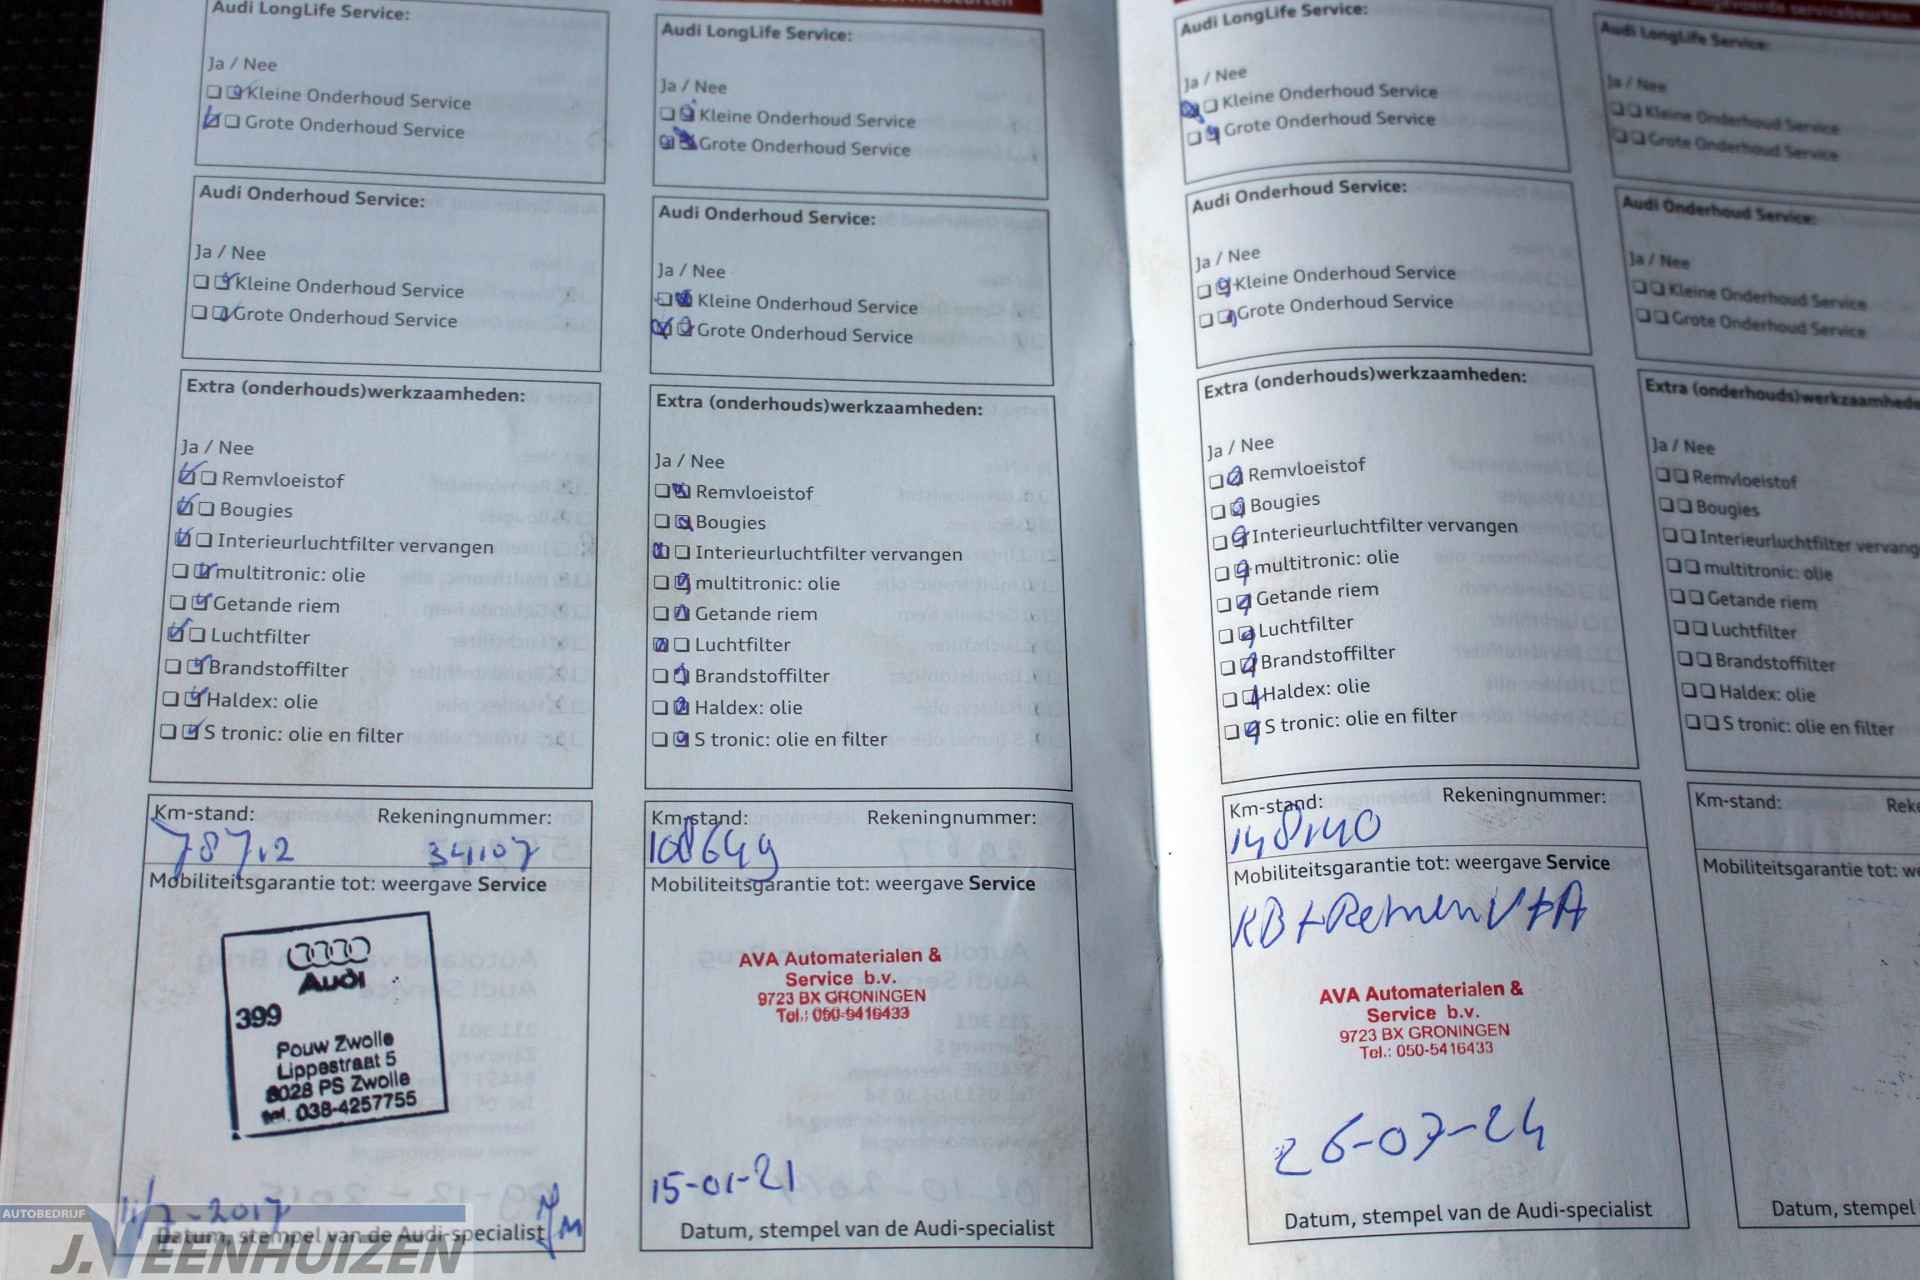 Audi LongLife Service:
Ja / Nee
Kleine Onderhoud Service
Grote Onderhoud Service
Audi Onderhoud Service:
Ja / Nee
Kleine Onderhoud Service
Grote Onderhoud Service
Extra (onderhouds)werkzaamheden:
Ja / Nee
Remvloeistof
Bougies
Interieurluchtfilter vervangen
multitronic: olie
Getande riem
Luchtfilter
Brandstoffilter
Haldex: olie
S tronic: olie en filter
Km-stand: Rekeningnummer:
34107
Mobiliteitsgarantie tot: weergave Service
Audi
399
Pouw Zwolle
Lippestraat 5
8028 PS Zwolle
tel. 038-4257755
11/7-2017
Datum, stempel van de Audi-specialist
Audi LongLife Service:
Ja / Nee
Kleine Onderhoud Service
Grote Onderhoud Service
Audi Onderhoud Service:
Ja / Nee
Kleine Onderhoud Service
Grote Onderhoud Service
Extra (onderhouds)werkzaamheden:
Ja / Nee
Remvloeistof
Bougies
Interieurluchtfilter vervangen
multitronic: olie
Getande riem
Luchtfilter
Brandstoffilter
Haldex: olie
S tronic: olie en filter
Km-stand: Rekeningnummer:
108649
Mobiliteitsgarantie tot: weergave Service
AVA Automaterialen &
Service b.v.
9723 BX GRONINGEN
Tel.: 050-5416433
15-01-21
Datum, stempel van de Audi-specialist
Audi LongLife Service:
Ja / Nee
Kleine Onderhoud Service
Grote Onderhoud Service
Audi Onderhoud Service:
Ja / Nee
Kleine Onderhoud Service
Grote Onderhoud Service
Extra (onderhouds)werkzaamheden:
Ja / Nee
Remvloeistof
Bougies
Interieurluchtfilter vervangen
multitronic: olie
Getande riem
Luchtfilter
Brandstoffilter
Haldex: olie
S tronic: olie en filter
Km-stand: Rekeningnummer:
148140
Mobiliteitsgarantie tot: weergave Service
KB + Remmen V+A
AVA Automaterialen &
Service b.v.
9723 BX GRONINGEN
Tel.: 050-5416433
26-07-24
Datum, stempel van de Audi-specialist
Audi LongLife Service:
Ja / Nee
Kleine Onderhoud Service
Grote Onderhoud Service
Audi Onderhoud Service:
Ja / Nee
Kleine Onderhoud Service
Grote Onderhoud Service
Extra (onderhouds)werkzaamhede
Ja / Nee
Remvloeistof
Bougies
Interieurluchtfilter vervang
multitronic: olie
Getande riem
Luchtfilter
Brandstoffilter
Haldex: olie
S tronic: olie en filter
Km-stand: Reke
Mobiliteitsgarantie tot: we
Datum, stempel
AUTOBEDRIJF
J.VEENHUIZEN